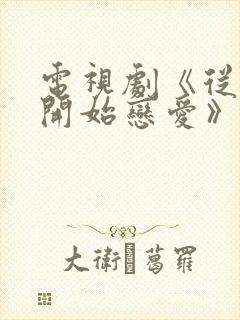 電視劇《從
開始戀愛》
大衛·葛羅